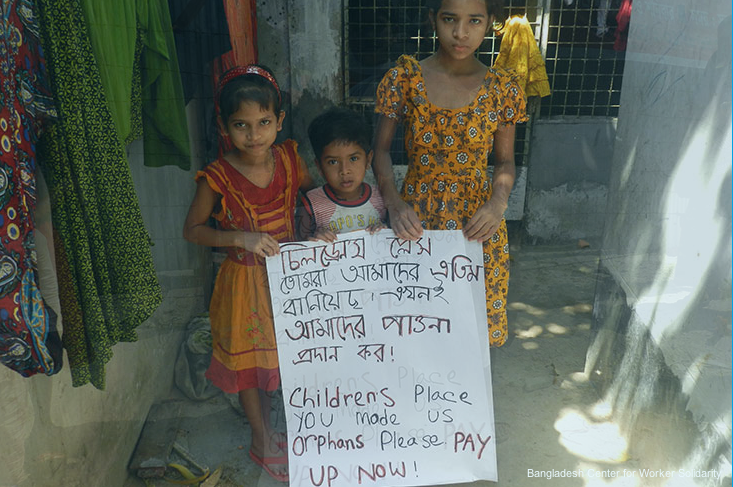 চিলড্রেন্স প্লেস
তোমরা আমাদের এতিম
বানিয়েছ, এখনই
আমাদের পাওনা
প্রদান কর!
Childrens Place
YOU made us
Orphans Please PAY
UP NOW!
Bangladesh Center for Worker Solidarity